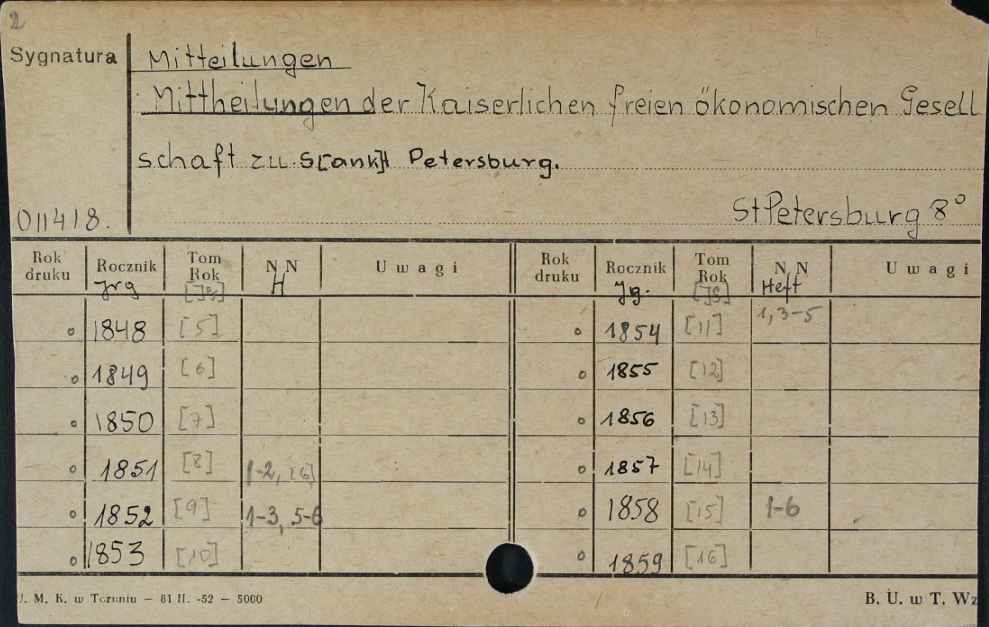 2
Sygnatura
Mitteilungen
Mittheilungen der Kaiserlichen freien ökonomischen Gesell
schaft zu S[ank]t Petersburg.
011418. St Petersburg 8°
Rok druku Rocznik Tom Rok N N Uwagi Rok druku Rocznik Tom Rok N N Uwagi
Jrg [Jg] H Jg. [Jg] Heft
o 1848 [5] o 1854 [11] 1, 3-5
o 1849 [6] o 1855 [12]
o 1850 [7] o 1856 [13]
o 1851 [8] 1-2, [6] o 1857 [14]
o 1852 [9] 1-3, 5-6 o 1858 [15] 1-6
o 1853 [10] o 1859 [16]
U. M. K. w Toruniu — 81 II. -52 — 5000 B. U. w T. Wz